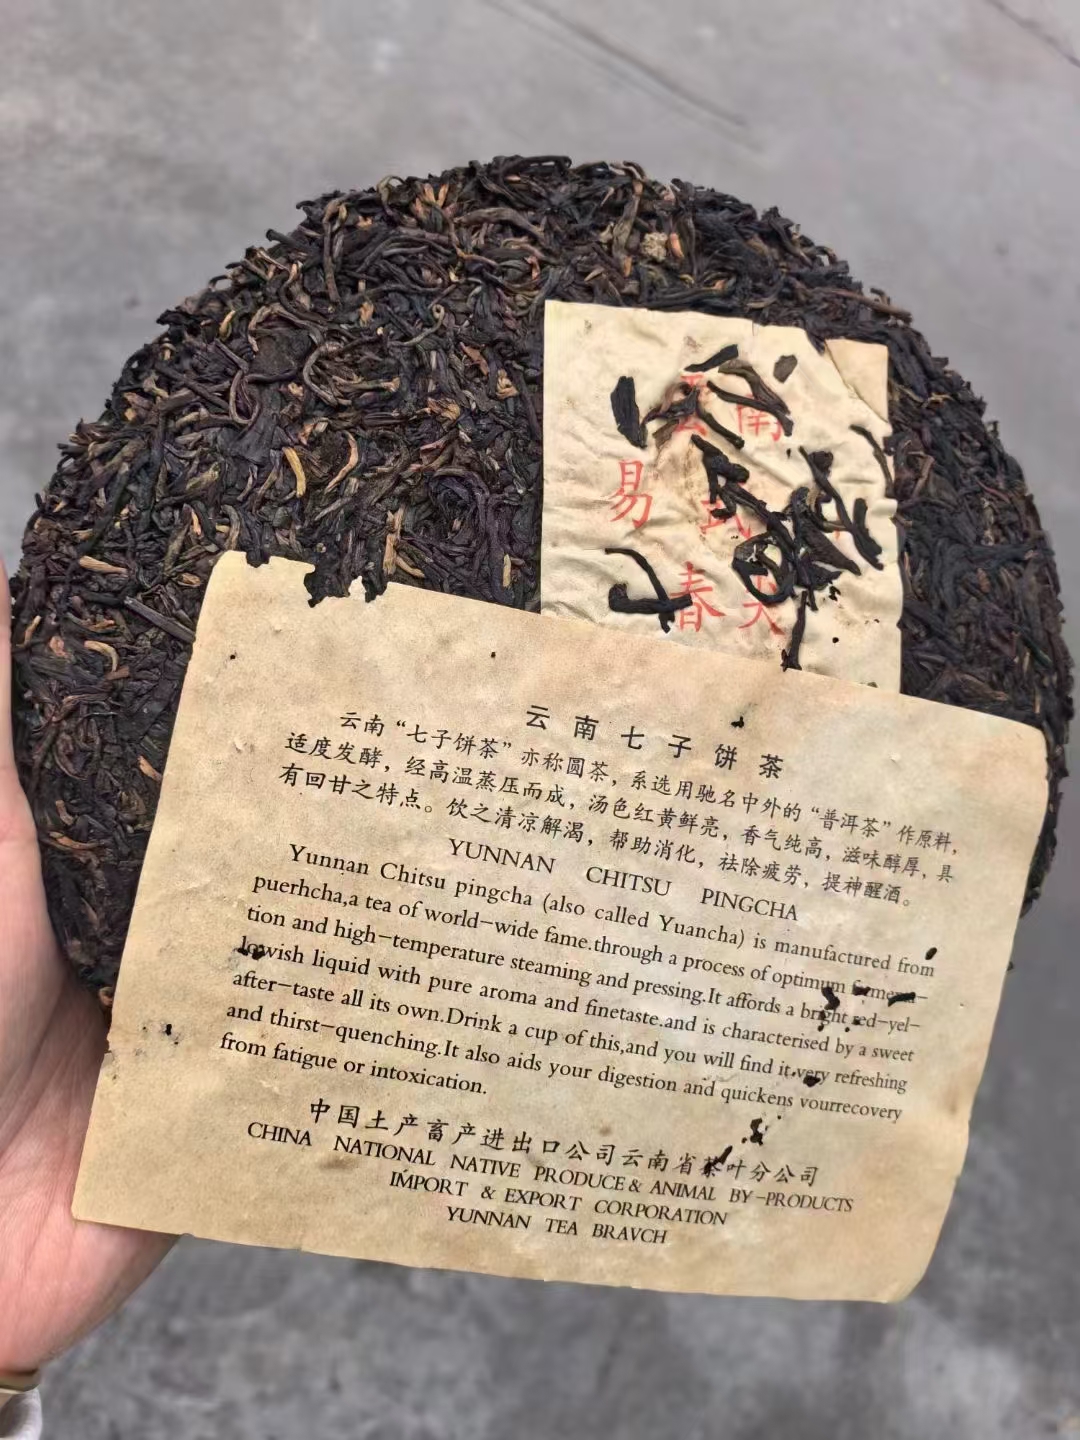 云南
易武
春尖
云南七子饼茶
云南“七子饼茶”亦称圆茶，系选用驰名中外的“普洱茶”作原料，
适度发酵，经高温蒸压而成，汤色红黄鲜亮，香气纯高，滋味醇厚，具
有回甘之特点。饮之清凉解渴，帮助消化，祛除疲劳，提神醒酒。
YUNNAN CHITSU PINGCHA
Yunnan Chitsu pingcha (also called Yuancha) is manufactured from
puerhcha,a tea of world-wide fame.through a process of optimum fermenta-
tion and high-temperature steaming and pressing.It affords a bright red-yel-
lowish liquid with pure aroma and finetaste.and is characterised by a sweet
after-taste all its own.Drink a cup of this,and you will find it very refreshing
and thirst-quenching.It also aids your digestion and quickens vourrecovery
from fatigue or intoxication.
中国土产畜产进出口公司云南省茶叶分公司
CHINA NATIONAL NATIVE PRODUCE & ANIMAL BY-PRODUCTS
IMPORT & EXPORT CORPORATION
YUNNAN TEA BRAVCH